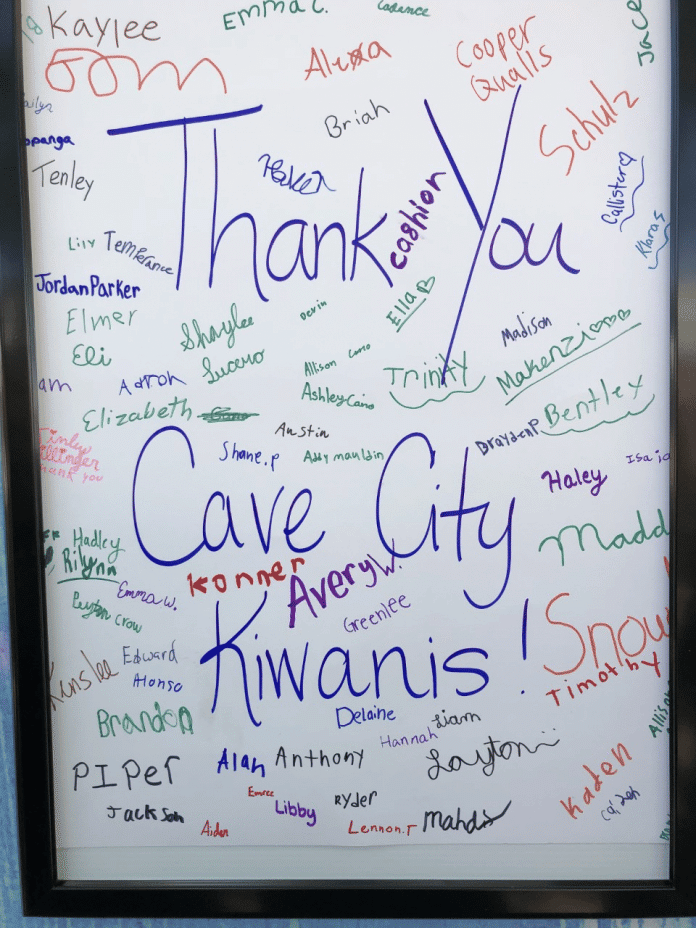 Kaylee
Emma C.
Cadence
Jace
Alexa
Cooper
Qualls
Schulz
Briah
Thank You
Tenley
cashion
Callister
Klaras
Lily
Temperance
Jordan Parker
Elmer
Shaylee
Devin
Ella
Madison
Eli
Lucero
Makenzi
Trinity
Allison Cano
Aaron
Ashley Cano
Elizabeth
Bentley
Austin
Brayden P
Shane.P
Addy mauldin
Haley
Thank you
Cave City
Madd
Hadley
Rilynn
Konner
Avery W.
Emma W.
Peyton
Crow
Greenlee
Kiwanis!
Snow
Timothy
Kinslee
Edward
Alonso
Brandon
Delaine
Liam
Hannah
PIPer
Alan
Anthony
Layton
Kaden
Jackson
Emree
Libby
Ryder
Aiden
Lennon.T